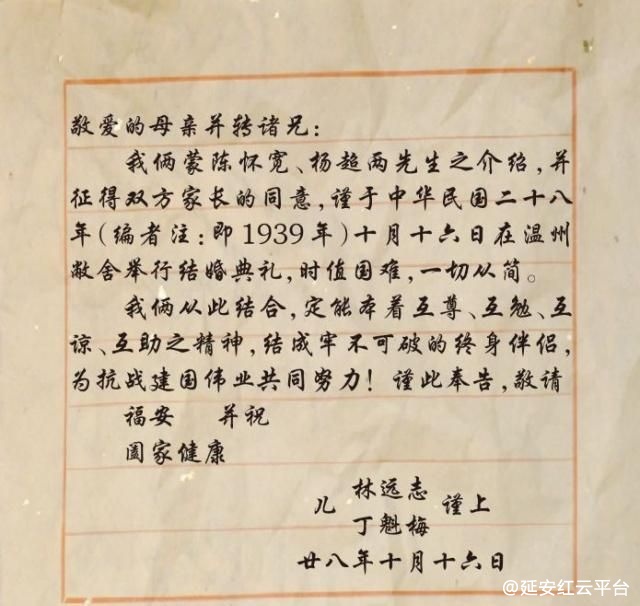 敬爱的母亲并转诸兄：
我俩蒙陈怀宽、杨超两先生之介绍，并
征得双方家长的同意，谨于中华民国二十八
年（编者注：即1939年）十月十六日在温州
敝舍举行结婚典礼，时值国难，一切从简。
我俩从此结合，定能本着互尊、互勉、互
谅、互助之精神，结成牢不可破的终身伴侣，
为抗战建国伟业共同努力！谨此奉告，敬请
福安　并祝
阖家健康
林远志
儿　谨上
丁魁梅
廿八年十月十六日
@延安红云平台